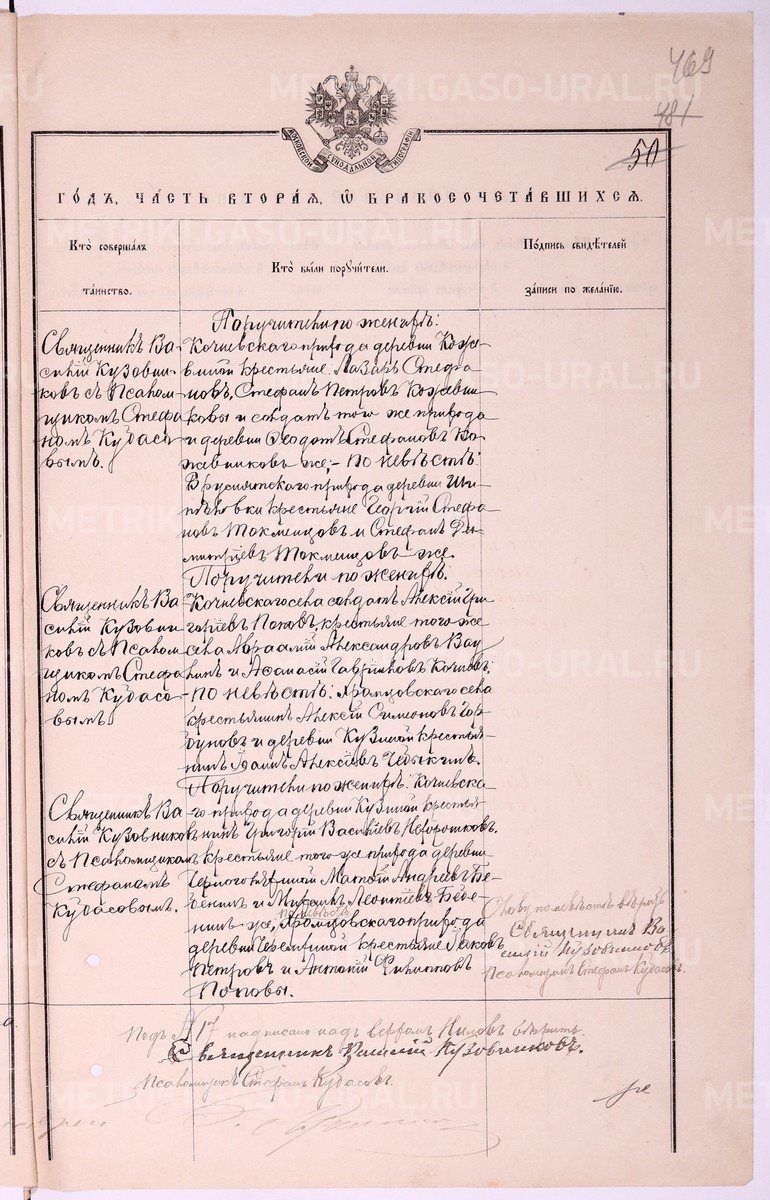 469
481
50
МОСКОВСКОЙ СѴНОДАЛЬНОЙ ТИПОГРАФІИ
ГОДЪ, ЧАСТЬ ВТОРАЯ, Ѡ БРАКОСОЧЕТАВШИХСЯ.
Кто совершалъ
таинство.
Кто были поручители.
Подпись свидѣтелей
записи по желанію.
Священникъ Ва-
силій Кузовни-
ковъ съ Псалом-
щикомъ Стефа-
номъ Кудасо-
вымъ.
Поручители по женихѣ:
Кочневскаго прихода деревни Коже-
виной крестьяне Лазарь Стефа-
новъ, Стефанъ Петровъ Кожевни-
ковы и солдатъ того же прихода
и деревни Ѳеодотъ Стефановъ Ко-
жевниковъ же; - по невѣстѣ:
крестьяне Георгій Стефа-
новъ Токменцовъ и Стефанъ Ди-
митріевъ Токменцовъ же.
Священникъ Ва-
силій Кузовни-
ковъ съ Псалом-
щикомъ Стефа-
номъ Кудасо-
вымъ.
Поручители по женихѣ:
Кочневскаго села солдатъ Алексій Гри-
горіевъ Поповъ, крестьяне того же
села Авраамій Александровъ Вау-
линъ и Аѳанасій Гавриловъ Кочневъ.
По невѣстѣ: Храмцовскаго села
крестьянинъ Алексій Симеоновъ Гор-
буновъ и деревни Кузиной крестья-
нинъ Іоаннъ Алексіевъ Чебыкинъ.
Священникъ Ва-
силій Кузовниковъ
съ Псаломщикомъ
Стефаномъ
Кудасовымъ.
Поручители по женихѣ: Кочневска-
го прихода деревни Кузиной крестья-
нинъ Григорій Василіевъ
крестьяне того же прихода деревни
Матѳій Андреевъ Бѣ-
и Миронъ Леонтіевъ
же, по невѣстѣ Храмцовскаго прихода
деревни крестьяне Іаковъ
Петровъ и Антоній Филипповъ
Поповы.
Слову по невѣстѣ вѣримъ
Священникъ Ва-
силій Кузовниковъ
Псаломщикъ Стефанъ Кудасовъ.
Подъ № 17 надписано надъ верхомъ вѣрить
Священникъ Василій Кузовниковъ.
Псаломщикъ Стефанъ Кудасовъ.
METRIKI.GASO-URAL.RU